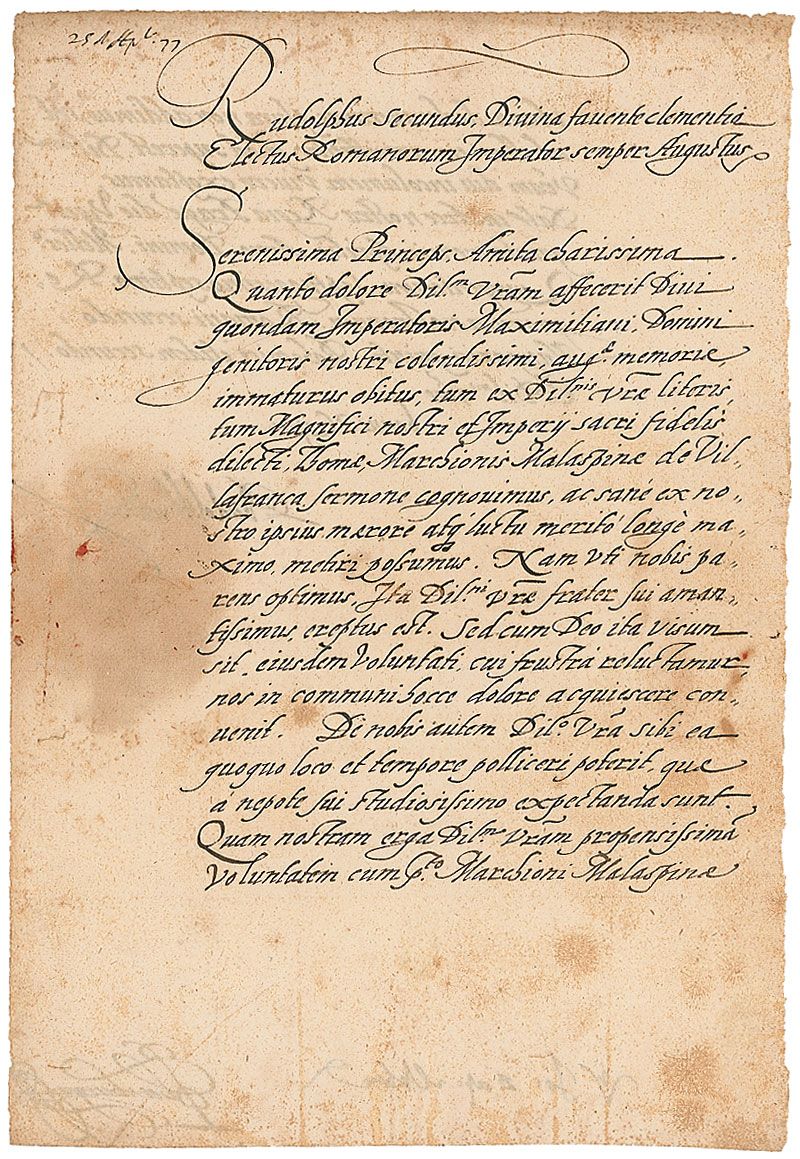 25 Ap^l. 77
Rudolphus Secundus, Divina favente clementia
Electus Romanorum Imperator semper Augustus
Serenissima Princeps, Amita charissima.
Quanto dolore Dil.^nem Vram̄ affecerit Divi
quondam Imperatoris Maximiliani, Domini
genitoris nostri colendissimi, aug.^æ memoriæ,
immaturus obitus, tum ex Dil.^nis vræ literis,
tum Magnifici nostri et Imperij sacri fidelis
dilecti, Thomæ, Marchionis Malaspinæ de Vil„
lafranca sermone cognovimus, ac sanè ex no„
stro ipsius mærore atq; luctu meritò longè ma„
ximo, metiri possumus. Nam vti nobis pa„
rens optimus, Ita Dil.^ni vræ frater sui aman„
tissimus, ereptus est. Sed cum Deo ita visum
sit, eiusdem voluntati, cui frustrà reluctamur,
nos in communi hocce dolore acquiescere con„
uenit. De nobis autem Dil.^o Vra sibi ea
quoquo loco et tempore polliceri poterit, quæ
à nepote sui studiosissimo expectanda sunt.
Quam nostram erga Dil.^nem Vram̄ propensissimā
voluntatem cum p.^to Marchioni Malaspinæ